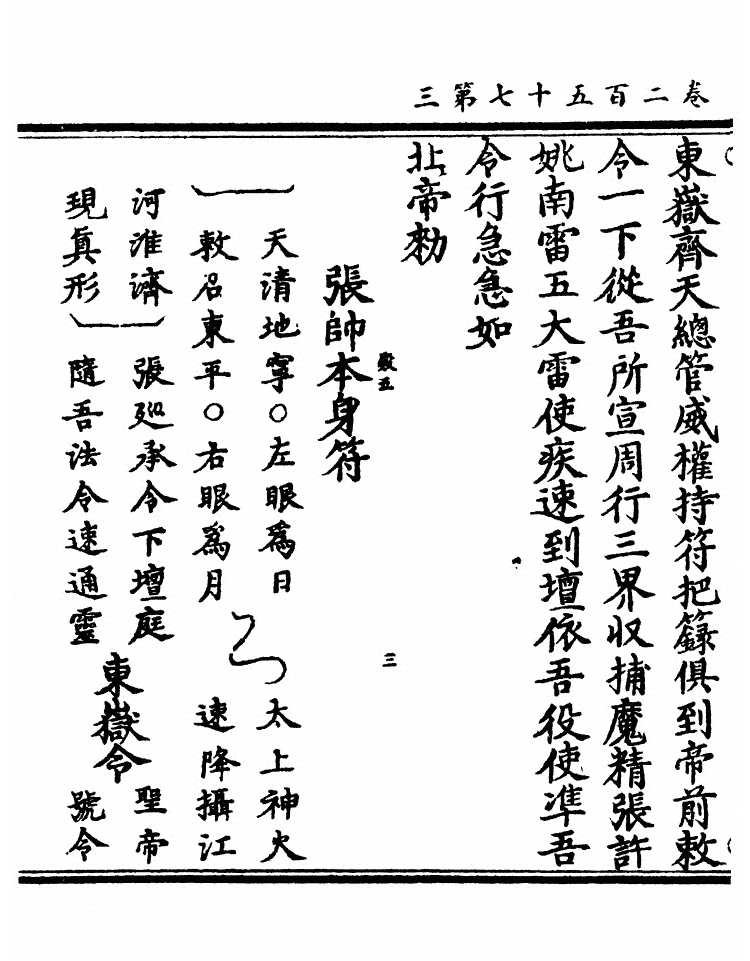 卷二百五十七第三
東嶽齊天總管威權持符把籙俱到帝前敕
令一下從吾所宣周行三界收捕魔精張許
姚南雷五大雷使疾速到壇依吾役使準吾
令行急急如
北帝勑
數五
三
張帥本身符
天清地寧○左眼為日
太上神火
敕召東平○右眼為月
速降攝江
河淮濟
張巡承令下壇庭
聖帝
東嶽令
現眞形
隨吾法令速通靈
號令